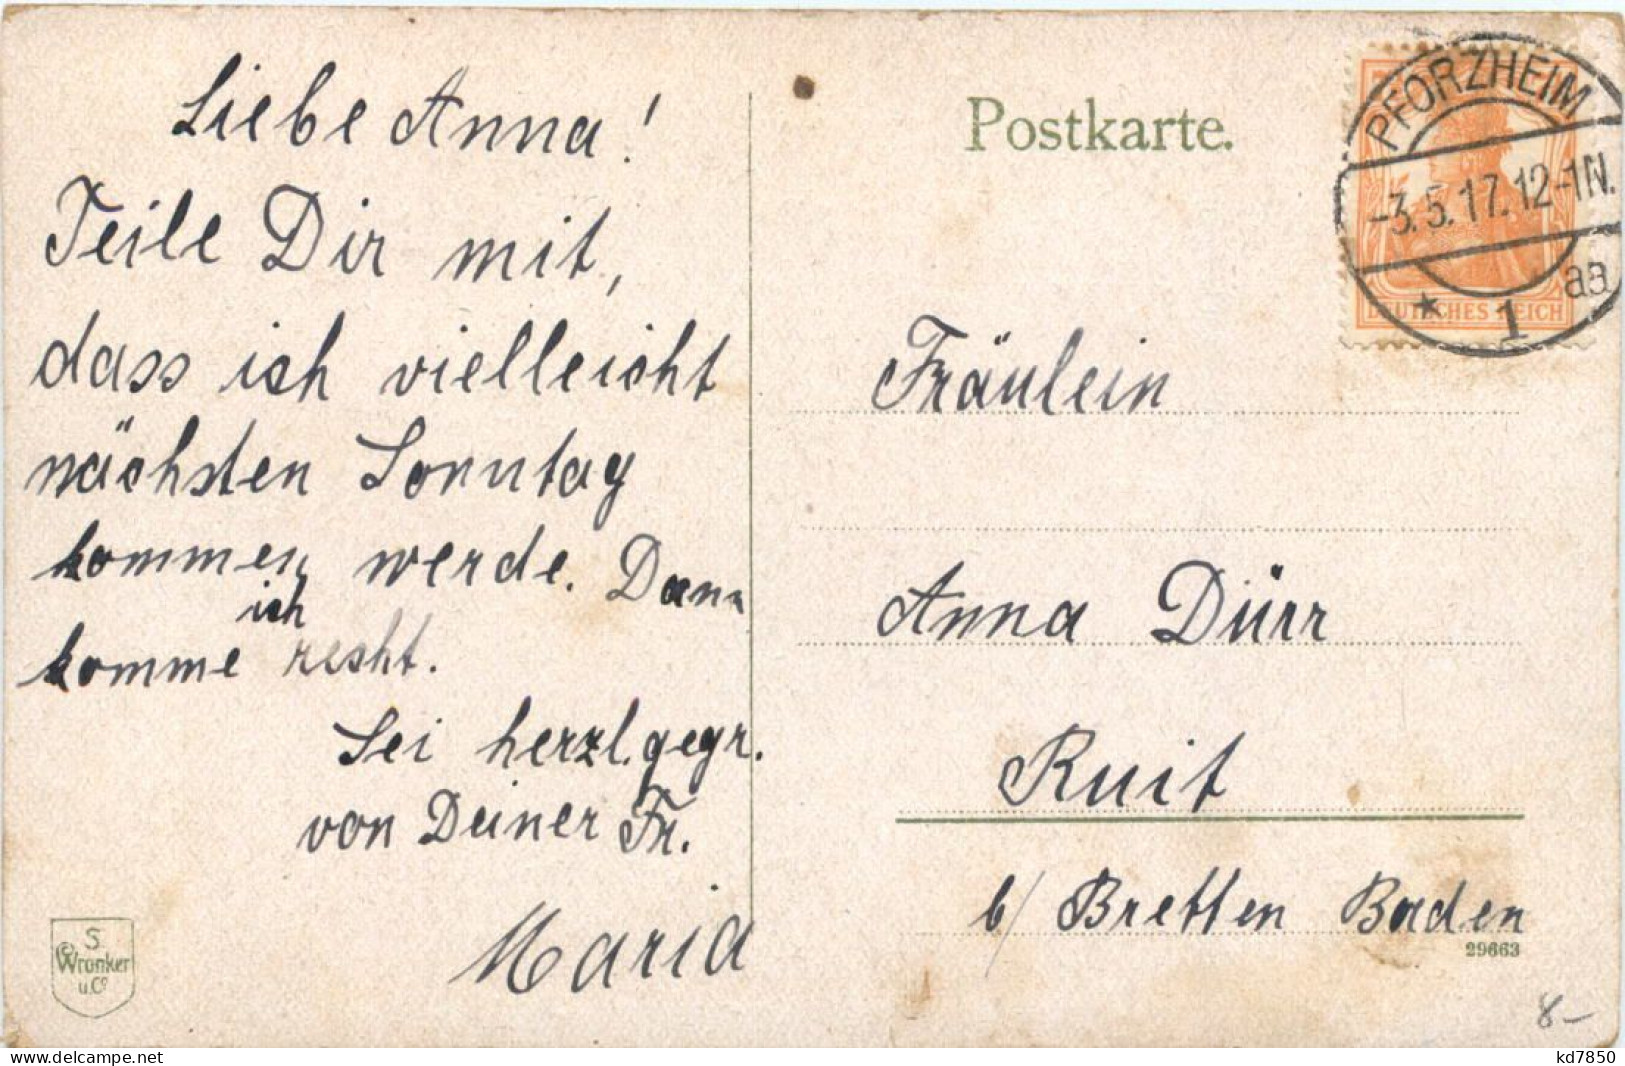 Liebe Anna!
Teile Dir mit,
dass ich vielleicht
nächsten Sonntag
kommen werde. Dann
ich
komme recht.
Sei herzl. gegr.
von Deiner Fr.
Maria
S.
© Wronker
u. Co
Postkarte.
PFORZHEIM
-3.5.17.12-1N.
* 1 aa
DEUTSCHES REICH
Fräulein
Anna Dürr
Ruit
b/ Bretten Baden
29663
8-
www.delcampe.net
kd7850